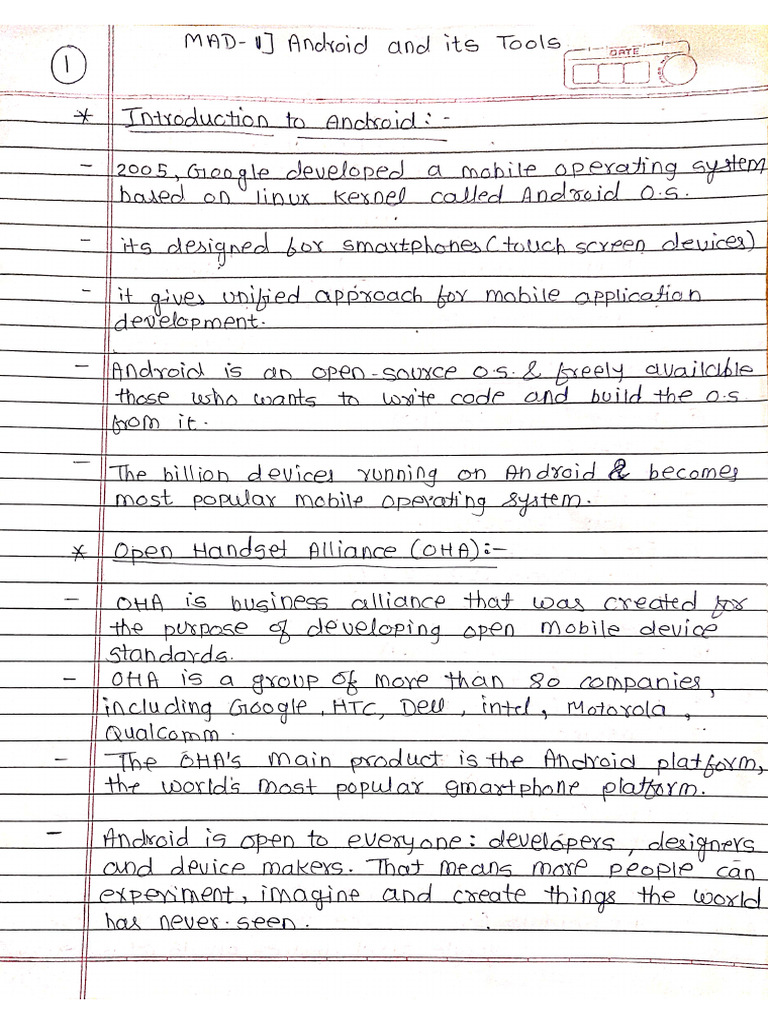 MAD-1] Android and its Tools
DATE
1
* Introduction to Android:-
- 2005, Google developed a mobile operating system
based on linux kernel called Android O.S.
- its designed for smartphones (touch screen devices)
- it gives unified approach for mobile application
development.
- Android is an open-source O.S. & freely available
those who wants to write code and build the O.S
from it.
- The billion devices running on Android & becomes
most popular mobile operating system.
* Open Handset Alliance (OHA):-
- OHA is business alliance that was created for
the purpose of developing open mobile device
standards.
- OHA is a group of more than 80 companies,
including Google, HTC, Dell, intel, Motorola,
Qualcomm.
- The OHA's main product is the Android platform,
the world's most popular smartphone platform.
- Android is open to everyone: developers, designers
and device makers. That means more people can
experiment, imagine and create things the world
has never seen.